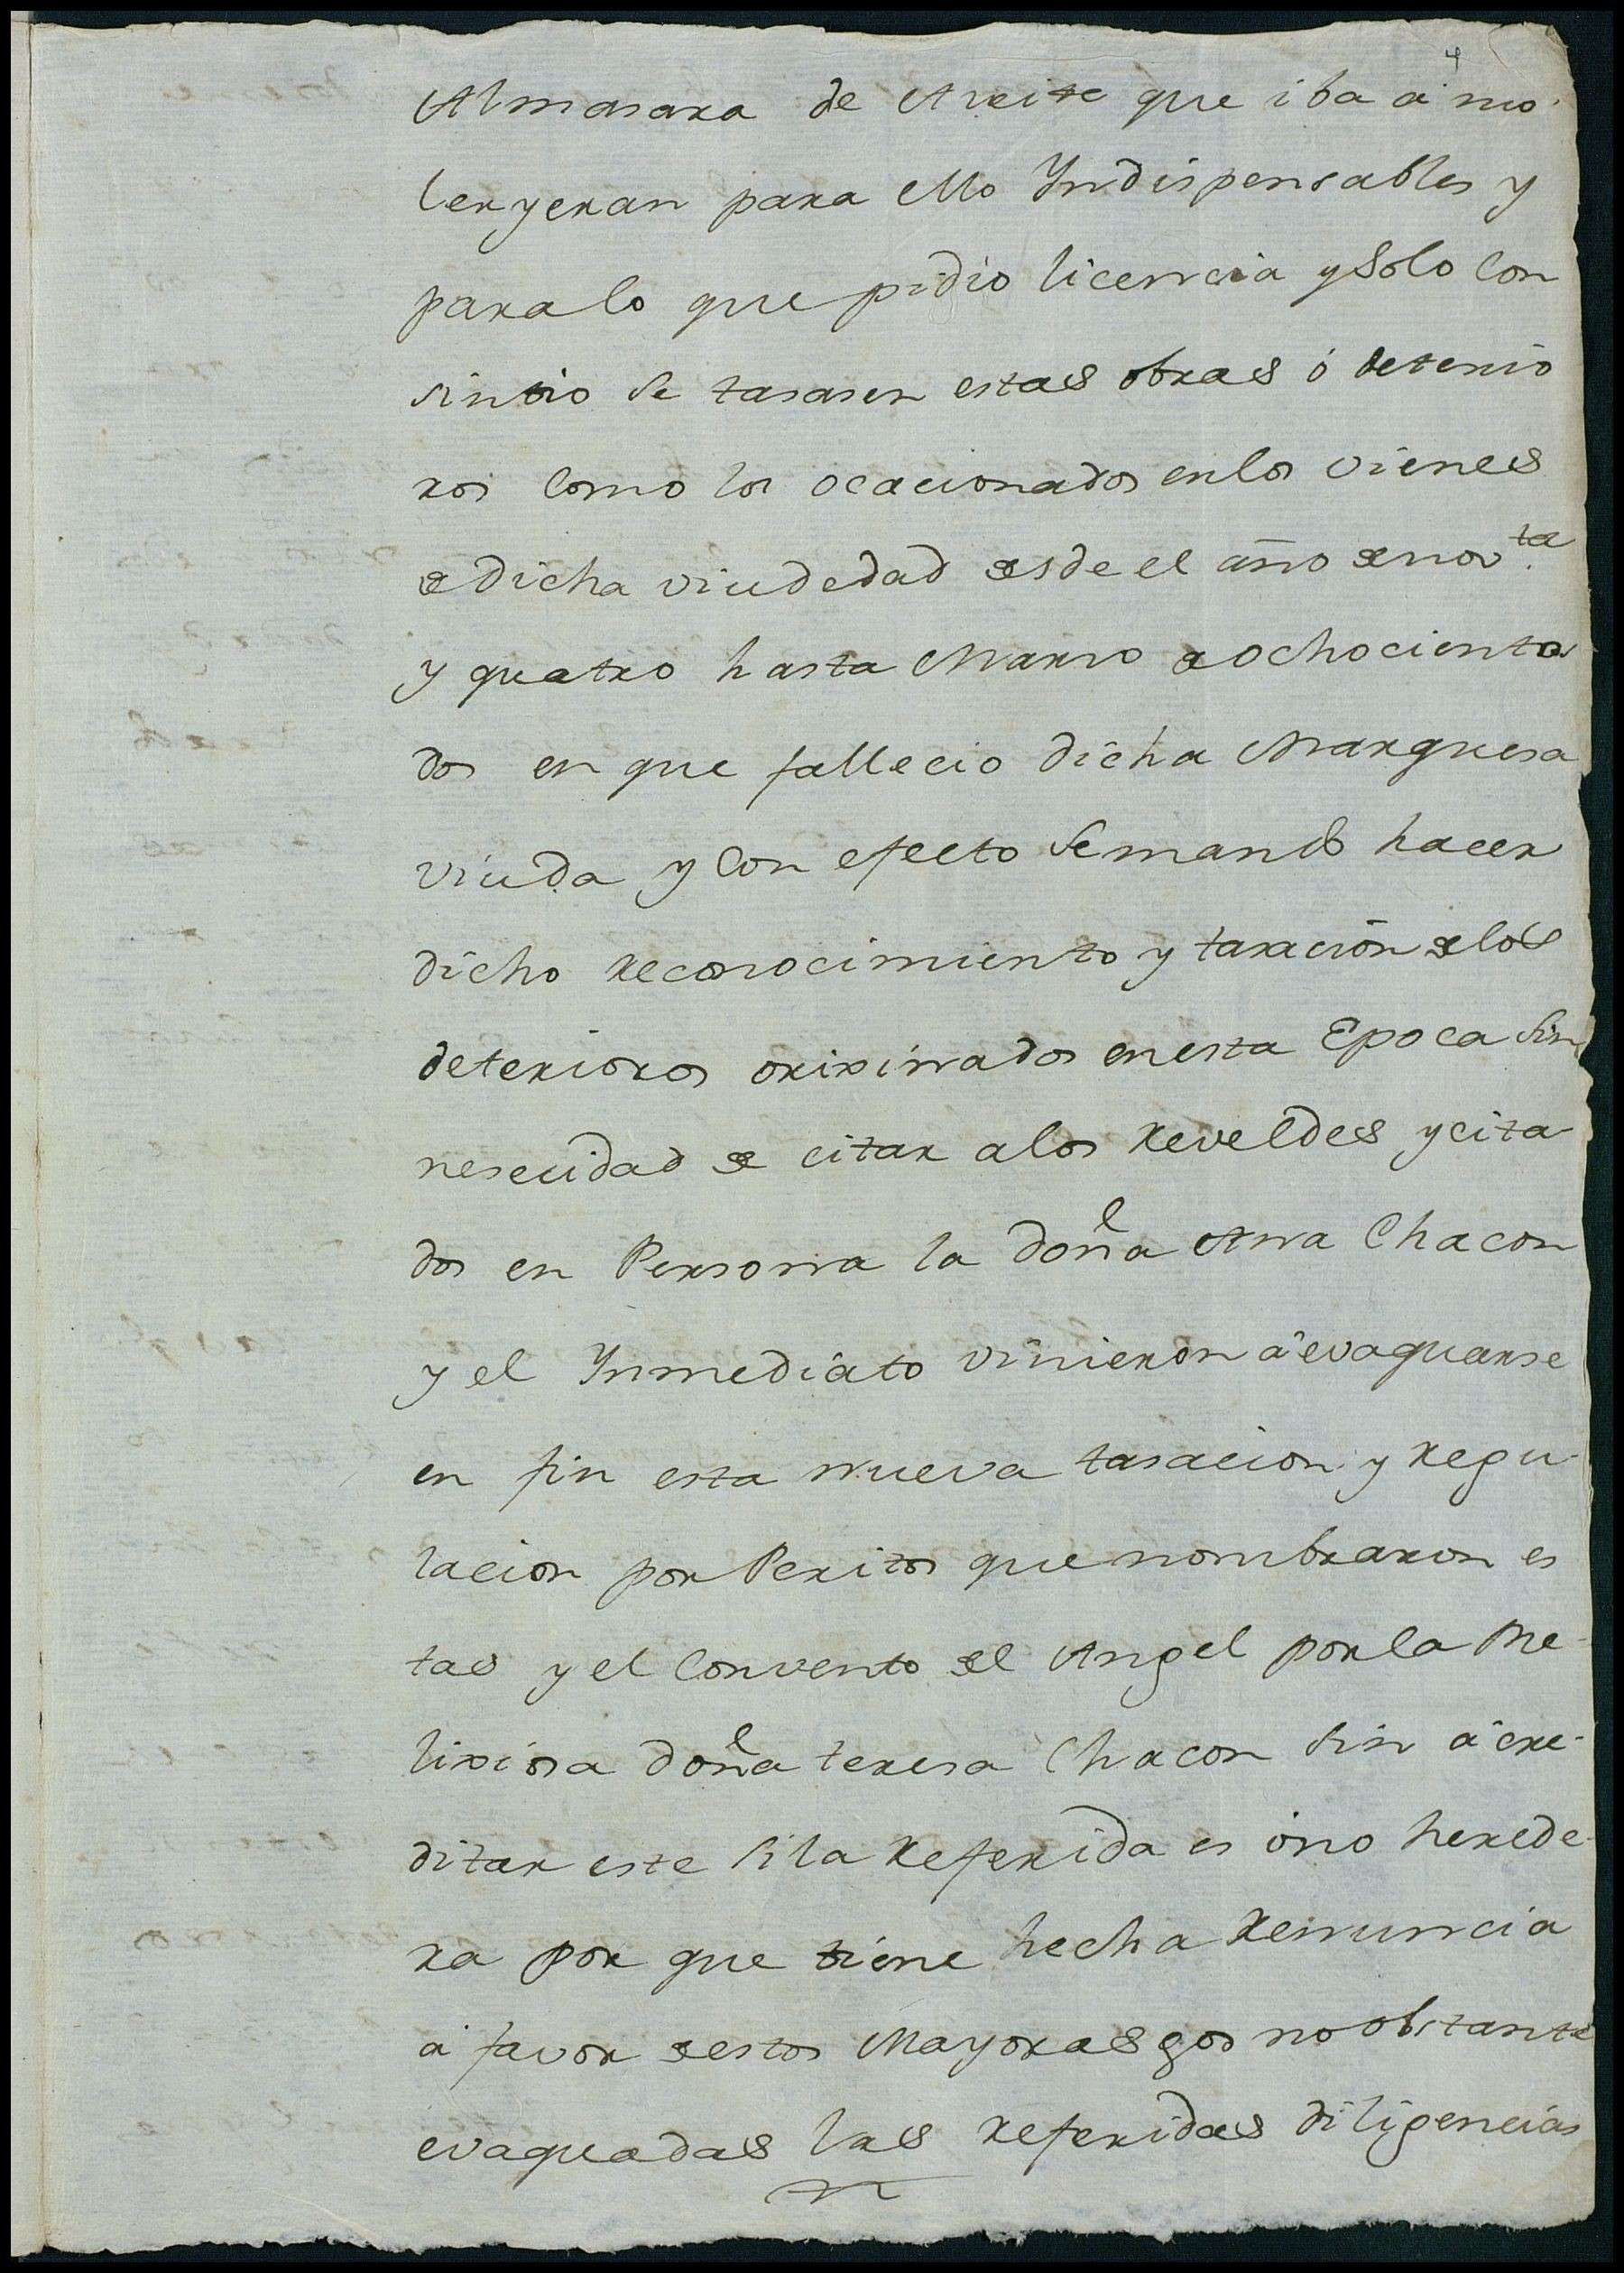 4
Almasara de Aceite que iba á mo-
ler y eran para ello Yndispensables y
para lo que pidio licencia y Solo Con
sintio Se tasasen estas obras ó deterio
ros Como los ocacionados en los vienes
de dicha viudedad desde el año de nov.ta
y quatro hasta Marzo de ochocientos
dos en que fallecio dicha Marquesa
viuda y Con efecto Se mando hacer
dicho reconocimiento y taxacion de los
deterioros orixinados en esta Epoca Sin
nesecidad de citar a los Reveldes y cita
dos en Persona la doña Ana Chacon
y el Ynmediato vinieron á evaquarse
en fin esta nueva tasacion y regu-
lacion por Peritos que nombraron es
tas y el Convento del Angel por la Re-
lixiosa doña teresa Chacon Sin ácre-
ditar este Si la Referida es óno herede-
ra por que tiene hecha Renuncia
á favor de estos Mayorasgos no obstante
evaquadas las referidas diligencias